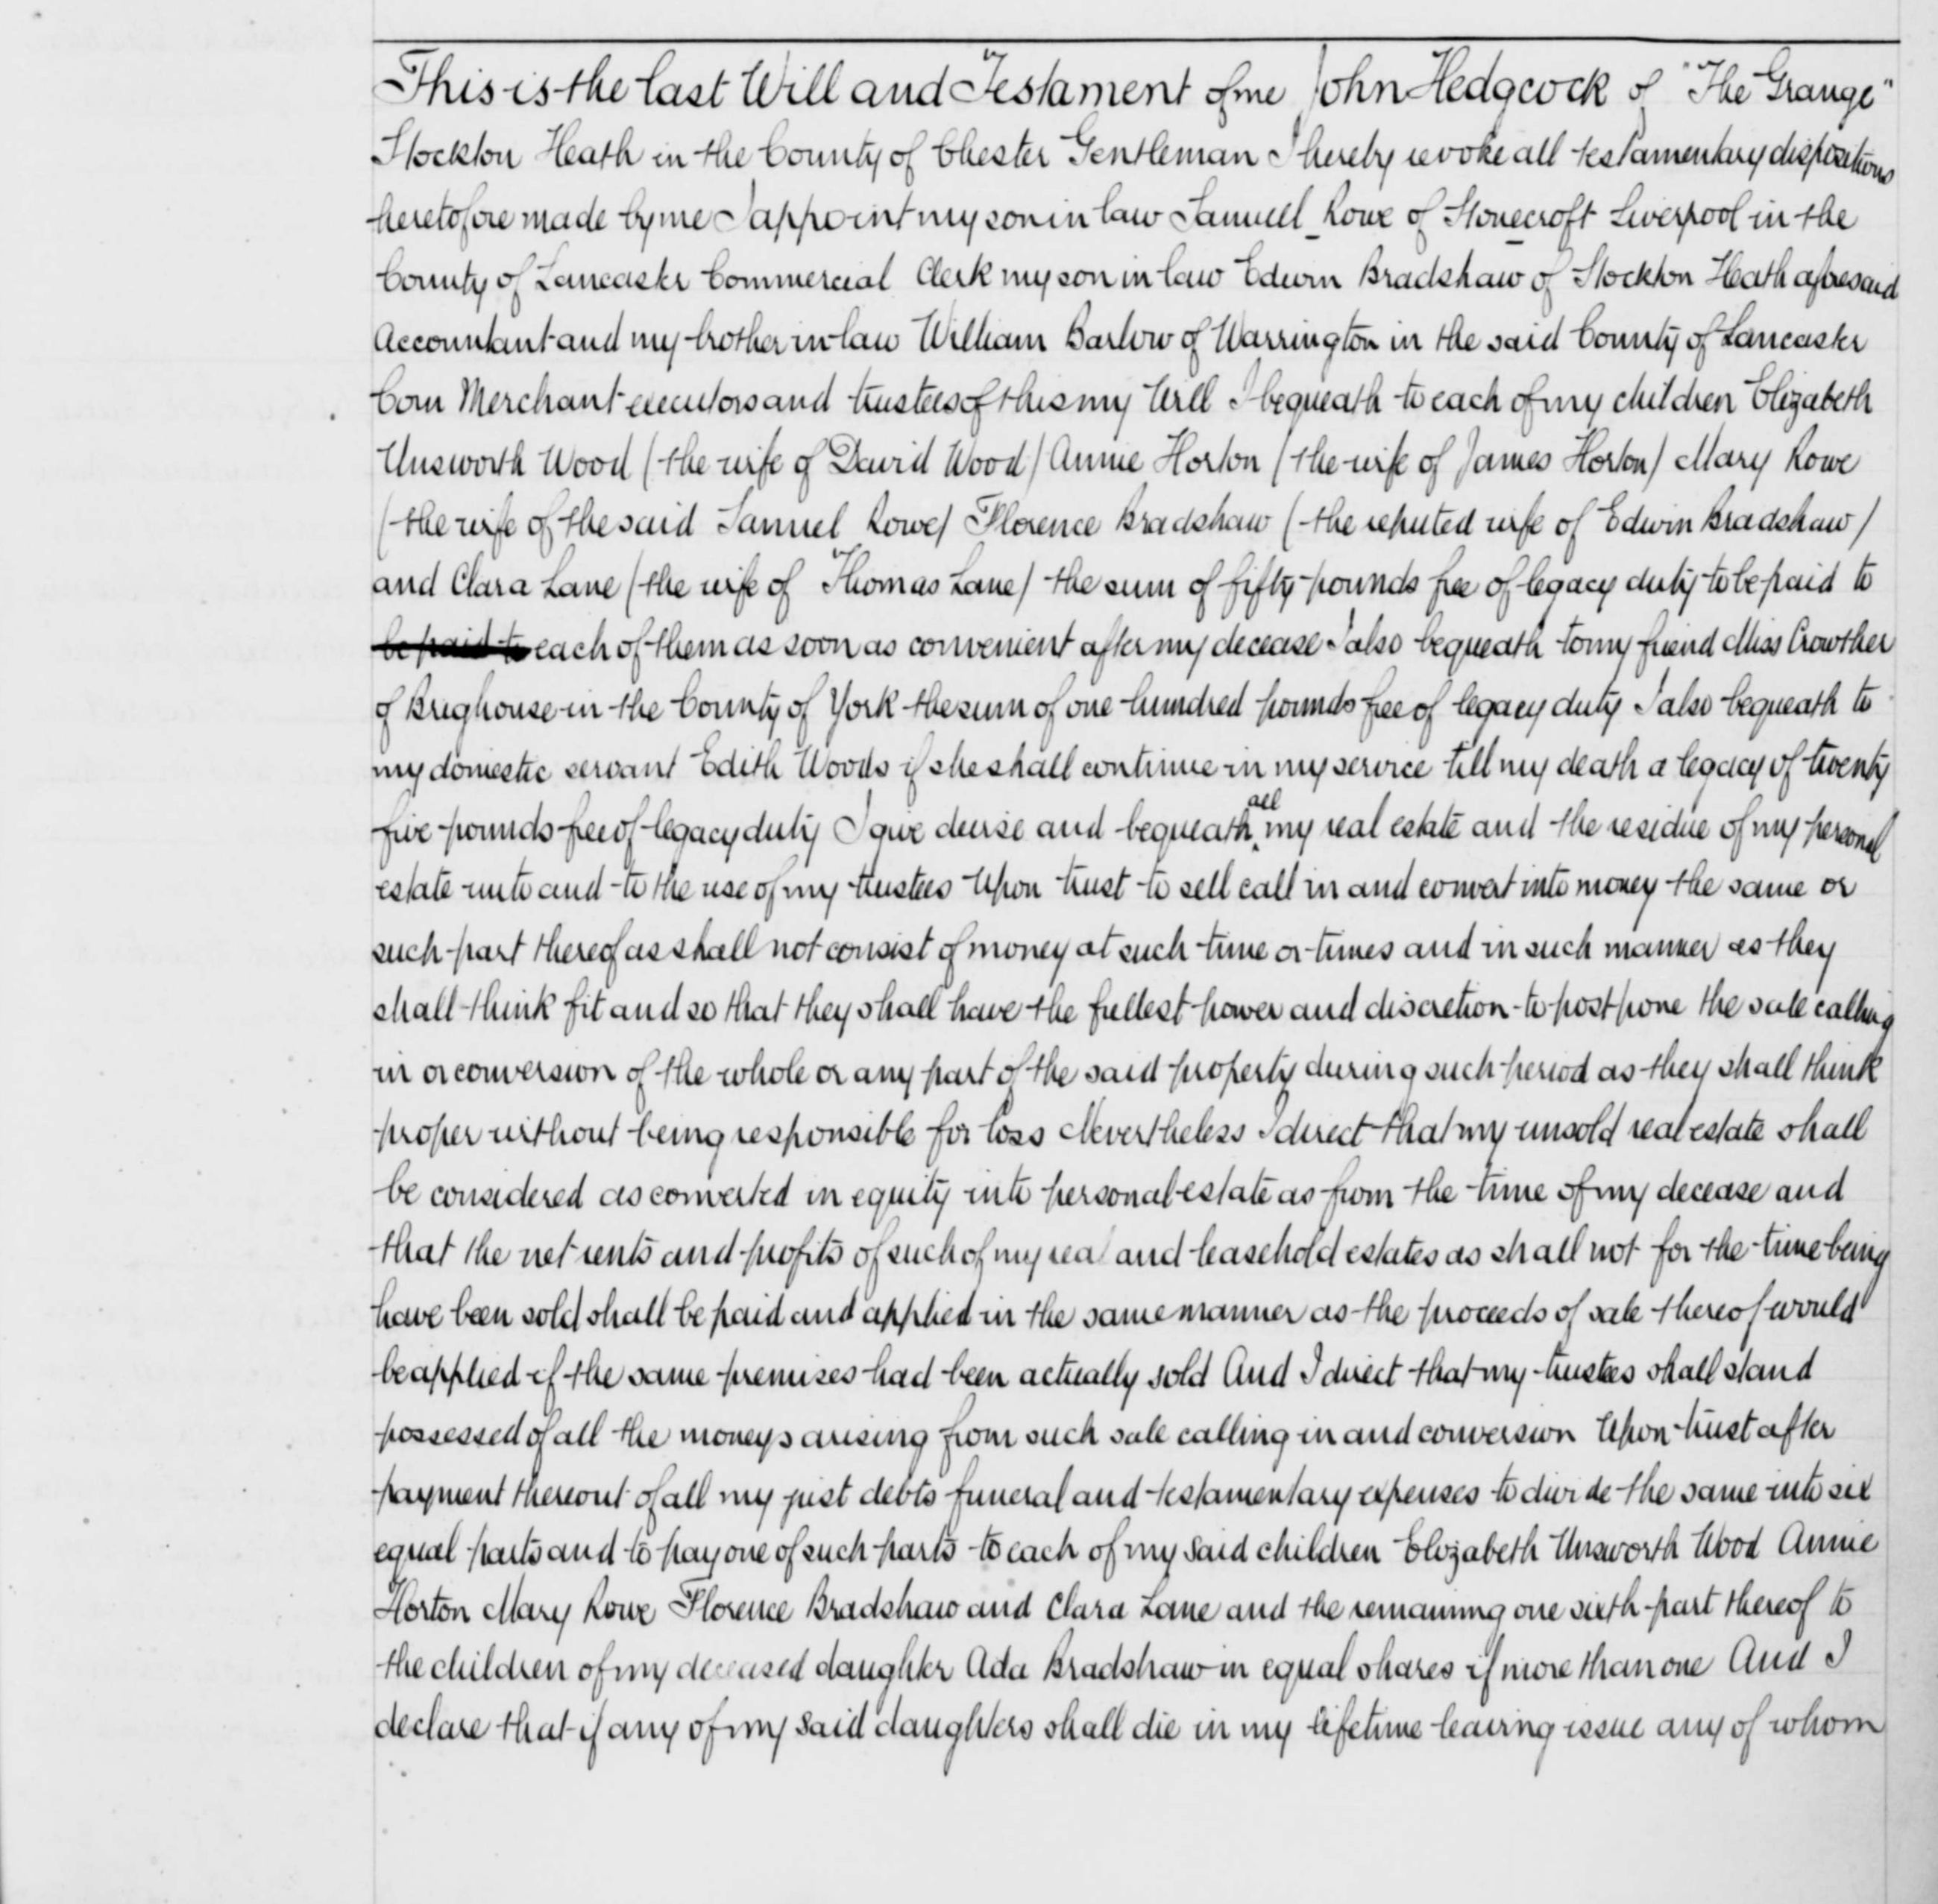 This is the last Will and Testament of me John Hedgcock of "The Grange"
Stockton Heath in the County of Chester Gentleman I hereby revoke all testamentary dispositions
heretofore made by me I appoint my son in law Samuel Rowe of Stonecroft Liverpool in the
County of Lancaster Commercial Clerk my son in law Edwin Bradshaw of Stockton Heath aforesaid
Accountant and my brother in law William Barlow of Warrington in the said County of Lancaster
Corn Merchant executors and trustees of this my Will I bequeath to each of my children Elizabeth
Unsworth Wood (the wife of David Wood) Annie Horton (the wife of James Horton) Mary Rowe
(the wife of the said Samuel Rowe) Florence Bradshaw (the reputed wife of Edwin Bradshaw)
and Clara Lane (the wife of Thomas Lane) the sum of fifty pounds free of legacy duty to be paid to
be paid to each of them as soon as convenient after my decease I also bequeath to my friend Miss Crowther
of Brighouse in the County of York the sum of one hundred pounds free of legacy duty I also bequeath to
my domestic servant Edith Woods if she shall continue in my service till my death a legacy of twenty
five pounds free of legacy duty I give devise and bequeath all my real estate and the residue of my personal
estate unto and to the use of my trustees Upon trust to sell call in and convert into money the same or
such part thereof as shall not consist of money at such time or times and in such manner as they
shall think fit and so that they shall have the fullest power and discretion to postpone the sale calling
in or conversion of the whole or any part of the said property during such period as they shall think
proper without being responsible for loss Nevertheless I direct that my unsold real estate shall
be considered as converted in equity into personal estate as from the time of my decease and
that the net rents and profits of such of my real and leasehold estates as shall not for the time being
have been sold shall be paid and applied in the same manner as the proceeds of sale thereof would
be applied if the same premises had been actually sold And I direct that my trustees shall stand
possessed of all the moneys arising from such sale calling in and conversion Upon trust after
payment thereout of all my just debts funeral and testamentary expenses to divide the same into six
equal parts and to pay one of such parts to each of my said children Elizabeth Unsworth Wood Annie
Horton Mary Rowe Florence Bradshaw and Clara Lane and the remaining one sixth part thereof to
the children of my deceased daughter Ada Bradshaw in equal shares if more than one And I
declare that if any of my said daughters shall die in my lifetime leaving issue any of whom